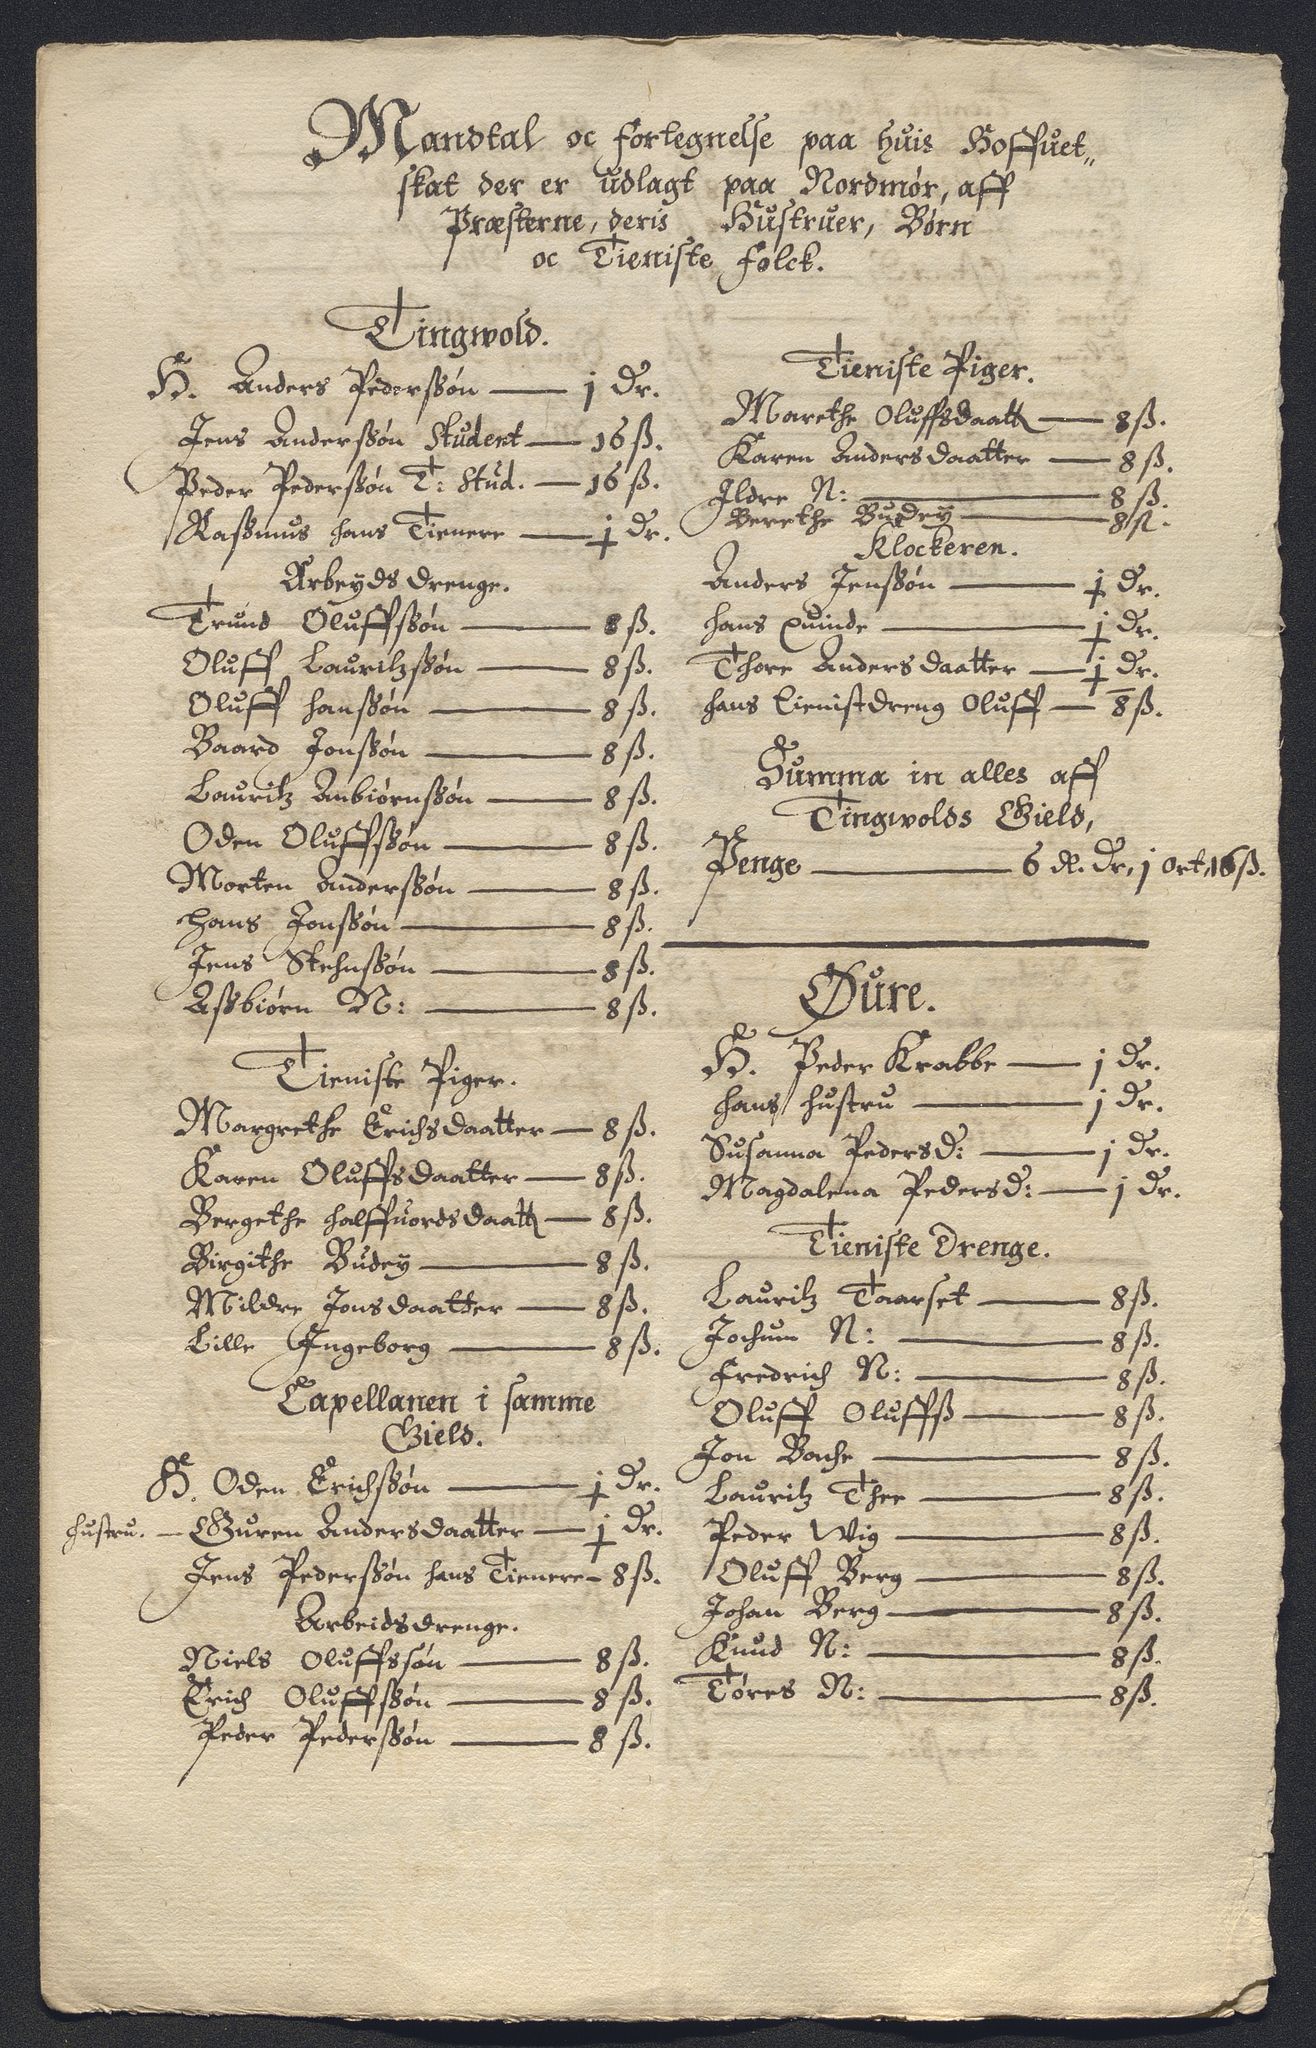 Mandtal oc fortegnelse paa huis Hoffuet„
skat der er udlagt paa Nordmør, aff
Præsterne, deris Hustruer, Børn
oc Tieniste folck.
Tingwold.
H. Anders Pederssøn — j Dr.
Jens Anderssøn Student — 16 ß.
Peder Pederssøn T: Stud. — 16 ß.
Rasmus hans Tienere — j Dr.
Arbeyds drenge.
Trund Oluffssøn — 8 ß.
Oluff Lauritzssøn — 8 ß.
Oluff hanssøn — 8 ß.
Baard Jonssøn — 8 ß.
Lauritz Anbiørnssøn — 8 ß.
Oden Oluffssøn — 8 ß.
Morten Anderssøn — 8 ß.
Hans Jonssøn — 8 ß.
Jens Stehnssøn — 8 ß.
Assbiørn N: — 8 ß.
Tieniste Piger.
Margrethe Erichsdaatter — 8 ß.
Karen Oluffsdaatter — 8 ß.
Bergethe halffuordsdaatt — 8 ß.
Birgithe Budey — 8 ß.
Mildre Jonsdaatter — 8 ß.
Lille Ingeborg — 8 ß.
Capellanen i samme
Gield.
H. Oden Erichssøn — j Dr.
hustru. — Guren Andersdaatter — j Dr.
Jens Pederssøn hans Tienere — 8 ß.
Arbeidsdrenge.
Niels Oluffssøn — 8 ß.
Erich Oluffssøn — 8 ß.
Peder Pederssøn — 8 ß.
Tieniste Piger.
Marethe Oluffsdaatt — 8 ß.
Karen Andersdaatter — 8 ß.
Ildre N: — 8 ß.
Berethe Budey — 8 ß.
Klockeren.
Anders Jenssøn — j Dr.
hans quinde — j Dr.
Thore Andersdaatter — j Dr.
hans tienistdreng Oluff — 8 ß.
Summa in alles aff
Tingwolds Gield,
Penge — 6 dl. Dr, j ort, 16 ß.
Øure.
H. Peder Krabbe — j Dr.
hans hustru — j Dr.
Susanna Pedersd: — j Dr.
Magdalena Pedersd: — j Dr.
Tieniste Drenge.
Lauritz Taarset — 8 ß.
Jochum N: — 8 ß.
Fredrich N: — 8 ß.
Oluff Oluffß — 8 ß.
Jon Bache — 8 ß.
Lauritz Thee — 8 ß.
Peder Wig — 8 ß.
Oluff Berg — 8 ß.
Johan Berg — 8 ß.
Knud N: — 8 ß.
Tøres N: — 8 ß.